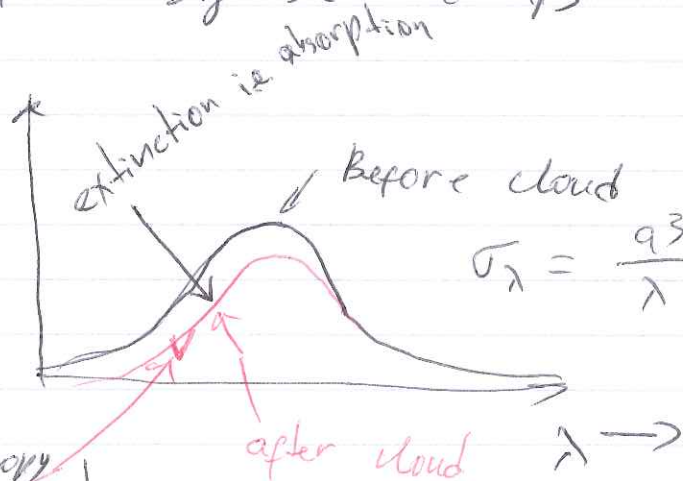 extinction ie absorption
Before cloud
σλ = a3 / λ
after cloud
λ →